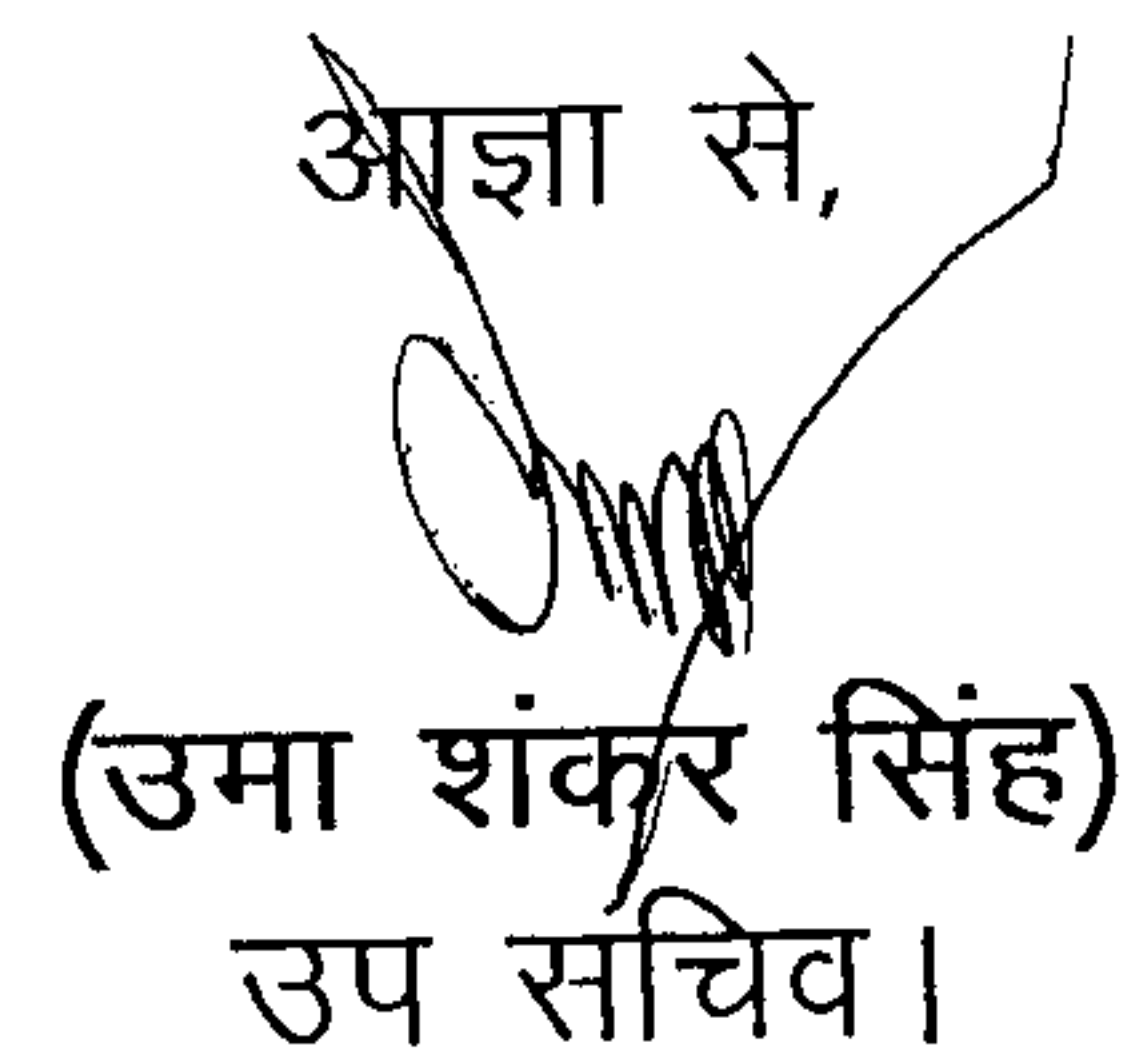 आज्ञा से,
(उमा शंकर सिंह)
उप सचिव।